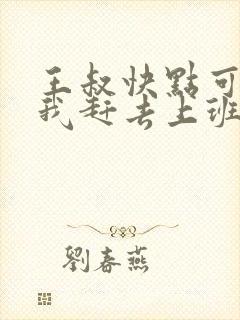 王叔快點可
我赶去上班
劉春燕